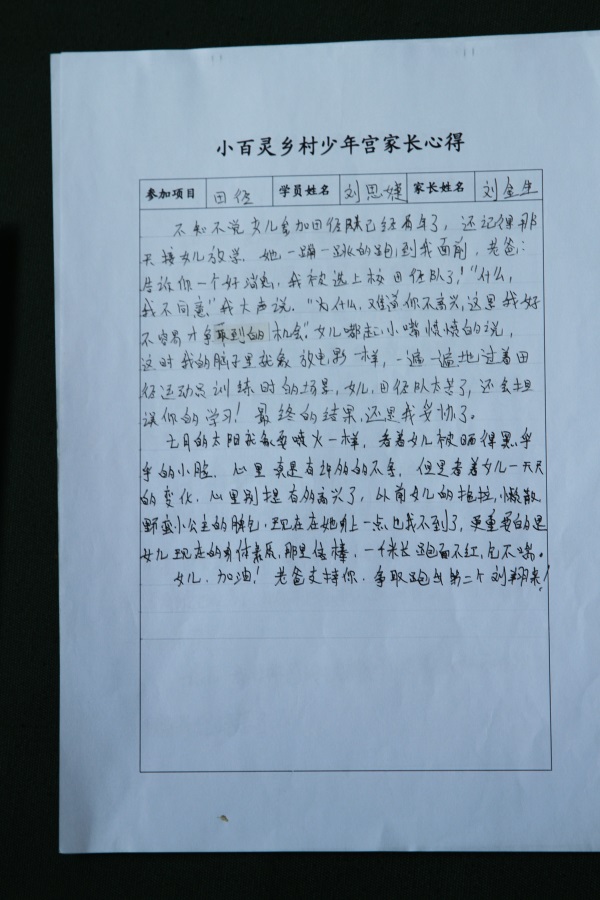 小百灵乡村少年宫家长心得
参加项目 田径 学员姓名 刘思婕 家长姓名 刘金生
不知不觉女儿参加田径队已经有年了，还记得那
天接女儿放学，她一蹦一跳的跑到我面前，老爸：
告诉你一个好消息，我被选上校田径队了！"什么，
我不同意"我大声说．"为什么，难道你不高兴，这是我好
不容易才争取到的机会"女儿嘟起小嘴愤愤的说，
这时我的脑子里就象放电影一样，一遍一遍地过着田
径运动员训练时的场景，女儿，田径队太苦了，还会担
误你的学习！最终的结果，还是我妥协了。
七月的太阳就象要喷火一样，看着女儿被晒得黑乎
乎的小脸，心里真是有种的的不舍，但是看着女儿一天天
的变化，心里别提有的高兴了，以前女儿的拖拉，懒散
野蛮小公主的脾气，现在在她身上一点也找不到了，更重要的是
女儿现在的身体素质，那里倍棒，一千米长跑面不红，气不喘。
女儿，加油！老爸支持你，争取跑出第二个刘翔来！